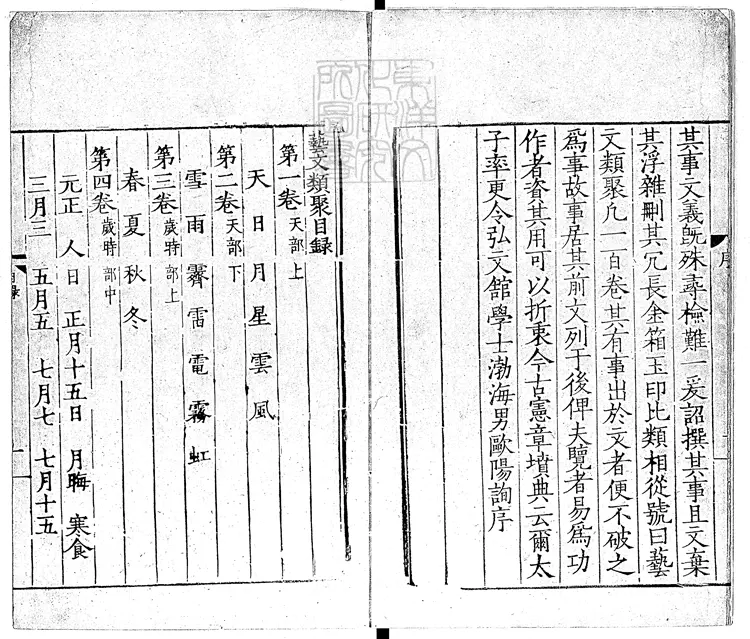 其事文義既殊尋檢難一爰詔撰其事且文棄
其浮雜刪其冗長金箱玉印比類相從號曰藝
文類聚凡一百卷其有事出於文者便不破之
爲事故事居其前文列于後俾夫覽者易爲功
作者資其用可以折衷今古憲章墳典云爾太
子率更令弘文館學士渤海男歐陽詢序
序
藝文類聚目録
第一卷 天部上
天 日 月 星 雲 風
第二卷 天部下
雪 雨 霽 雷 電 霧 虹
第三卷 歲時部上
春 夏 秋 冬
第四卷 歲時部中
元正 人日 正月十五日 月晦 寒食
三月三 五月五 七月七 七月十五
目録
一